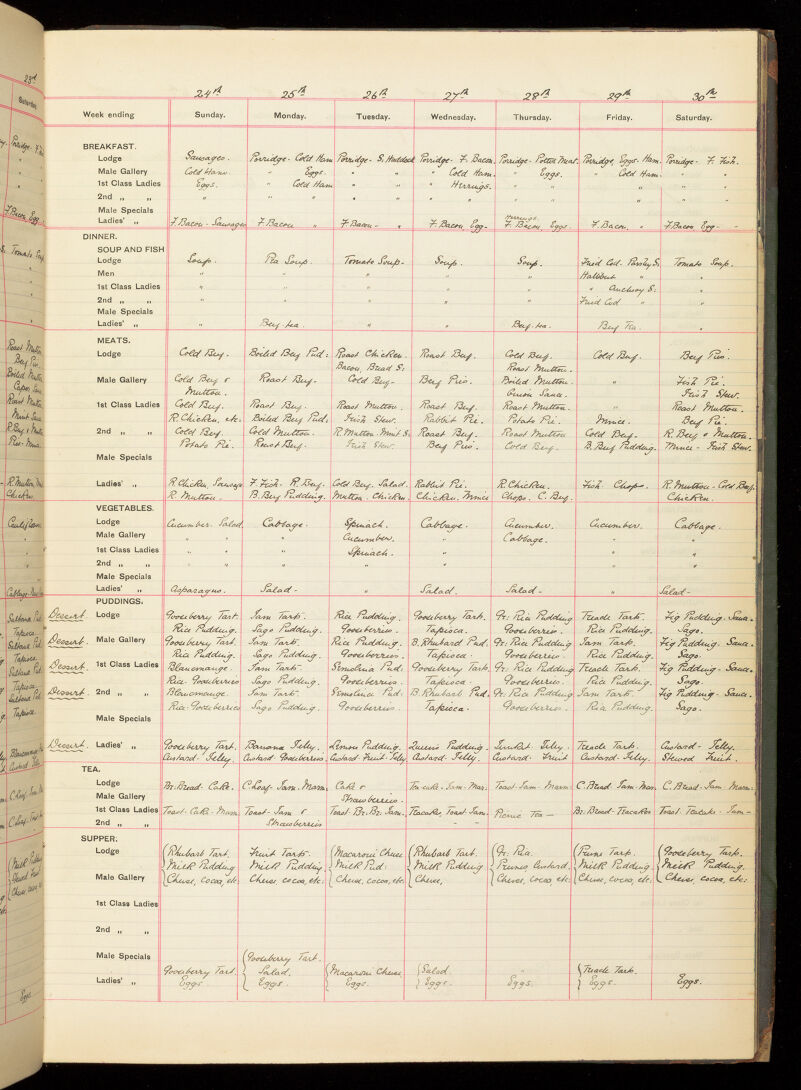 24th 25th 26th 27th 28th 29th 30th
Week ending Sunday. Monday. Tuesday. Wednesday. Thursday. Friday. Saturday.
BREAKFAST.
Lodge Sausages. Porridge - Cold Ham Porridge - S. Haddock Porridge - F. Bacon. Porridge - Potted Meat. Porridge, Eggs - Ham. Porridge - F. Fish.
Male Gallery Cold Ham. " Eggs. " " " Cold Ham. " Eggs. " Cold Ham. " "
1st Class Ladies Eggs. " Cold Ham " " " Herrings. " " " "
2nd „ „ " " " " " " " " "
Male Specials
Herrings.
Ladies' „ F. Bacon - Sausages F. Bacon " F. Bacon - " F. Bacon, Egg - F. Bacon, Eggs. F. Bacon, " F. Bacon Egg -
DINNER.
SOUP AND FISH
Lodge Soup. Pea Soup. Tomato Soup - Soup. Soup. Fried Cod. Parsley S: Tomato Soup.
Men " " " " " Halibut " "
1st Class Ladies " " " " " " Anchovy S: "
2nd „ „ " " " " " Fried Cod " "
Male Specials
Ladies' „ " Beef-tea. " " Beef-tea. Beef Tea. "
MEATS.
Lodge Cold Beef. Boiled Beef Pud: Roast Chicken. Roast Beef. Cold Beef. Cold Beef. Beef Pies.
Bacon, Bread S: Roast Mutton.
Male Gallery Cold Beef & Roast Beef - Cold Beef - Beef Pies. Boiled Mutton. " Fish Pie.
Mutton. Onion Sauce. Irish Stew.
1st Class Ladies Cold Beef. Roast Beef. Roast Mutton. Roast Beef. Roast Mutton. " Roast Mutton.
R. Chicken, etc. Boiled Beef Pud: Irish Stew. Rabbit Pie. Potato Pie. Mince. Beef Pie.
2nd „ „ Cold Beef. Cold Mutton. R. Mutton. Mint S: Roast Beef. Roast Mutton Cold Beef. R. Beef & Mutton.
Potato Pie. Roast Beef. Irish Stew. Beef Pies. Cold Beef. B. Beef Pudding. Mince - Irish Stew.
Male Specials
Ladies' „ R. Chicken, Sausage F. Fish - R. Beef. Cold Beef. Salad. Rabbit Pie. R. Chicken. Fish. Chops. R. Mutton - Cold Beef.
R. Mutton. B. Beef Pudding. Mutton. Chicken. Chicken. Mince Chops. C. Beef. Chicken.
VEGETABLES.
Lodge Cucumber. Salad. Cabbage. Spinach. Cabbage. Cucumber. Cucumber. Cabbage.
Male Gallery " " " Cucumber. " Cabbage. " "
1st Class Ladies " " " Spinach. " " "
2nd „ „ " " " " " " "
Male Specials
Ladies' „ Asparagus. Salad - " Salad. Salad - " Salad -
PUDDINGS.
Dessert Lodge Gooseberry Tart. Jam Tarts. Rice Pudding. Gooseberry Tart. Gr: Rice Pudding Treacle Tarts. Fig Pudding. Sauce.
Rice Pudding. Sago Pudding. Gooseberries. Tapioca. Gooseberries. Rice Pudding. Sago.
Dessert. Male Gallery Gooseberry Tart. Jam Tarts. Rice Pudding. B. Rhubarb Pud. Gr: Rice Pudding Jam Tarts. Fig Pudding. Sauce.
Rice Pudding. Sago Pudding. Gooseberries. Tapioca - Gooseberries. Rice Pudding. Sago.
Dessert. 1st Class Ladies Blancmange. Jam Tarts. Semolina Pud: Gooseberry Tarts. Gr: Rice Pudding Treacle Tarts. Fig Pudding - Sauce.
Rice. Gooseberries Sago Pudding. Gooseberries. Tapioca - Gooseberries. Rice Pudding. Sago.
Dessert. 2nd „ „ Blancmange. Jam Tarts. Semolina Pud: B. Rhubarb Pud. Gr. Rice Pudding Jam Tarts. Fig Pudding - Sauce.
Rice. Gooseberries Sago Pudding. Gooseberries. Tapioca. Gooseberries. Rice Pudding. Sago.
Male Specials
Dessert. Ladies' „ Gooseberry Tart. Banana Jelly. Lemon Pudding. Queens Pudding - Junket. Jelly. Treacle Tarts. Custard - Jelly.
Custard. Jelly. Custard. Gooseberries. Custard - Fruit - Jelly Custard. Jelly. Custard. Fruit Custard. Jelly. Stewed Fruit.
TEA.
Lodge Br. Bread. Cake. C. Loaf. Jam. Marm. Cake & Teacake. Jam. Mar. Toast. Jam - Marm. C. Bread. Jam. Mar. C. Bread. Jam. Marm:
Male Gallery Strawberries.
1st Class Ladies Toast. Cake. Marm. Toast. Jam & Toast. Br. Br. Jam. Teacakes, Toast. Jam. Picnic Tea - Br. Bread - Teacakes Toast Teacake. Jam -
2nd „ „ Strawberries
SUPPER.
Lodge Rhubarb Tart. Fruit Tarts. Macaroni Cheese Rhubarb Tart. Gr. Rice. Prune Tart. Gooseberry Tarts.
Milk Pudding Milk Pudding. Milk Pud: Milk Pudding. Prunes, Custard. Milk Pudding. Milk Pudding.
Male Gallery Cheese, Cocoa, etc. Cheese, cocoa, etc: Cheese, cocoa, etc: Cheese, Cheese, cocoa, etc. Cheese, cocoa, etc. Cheese, cocoa, etc:
1st Class Ladies
2nd „ „
Male Specials Gooseberry Tart.
Gooseberry Tart. Salad. Macaroni Cheese Salad. " Treacle Tart.
Ladies' „ Eggs. Eggs. Eggs. Eggs. Eggs. Eggs. Eggs.